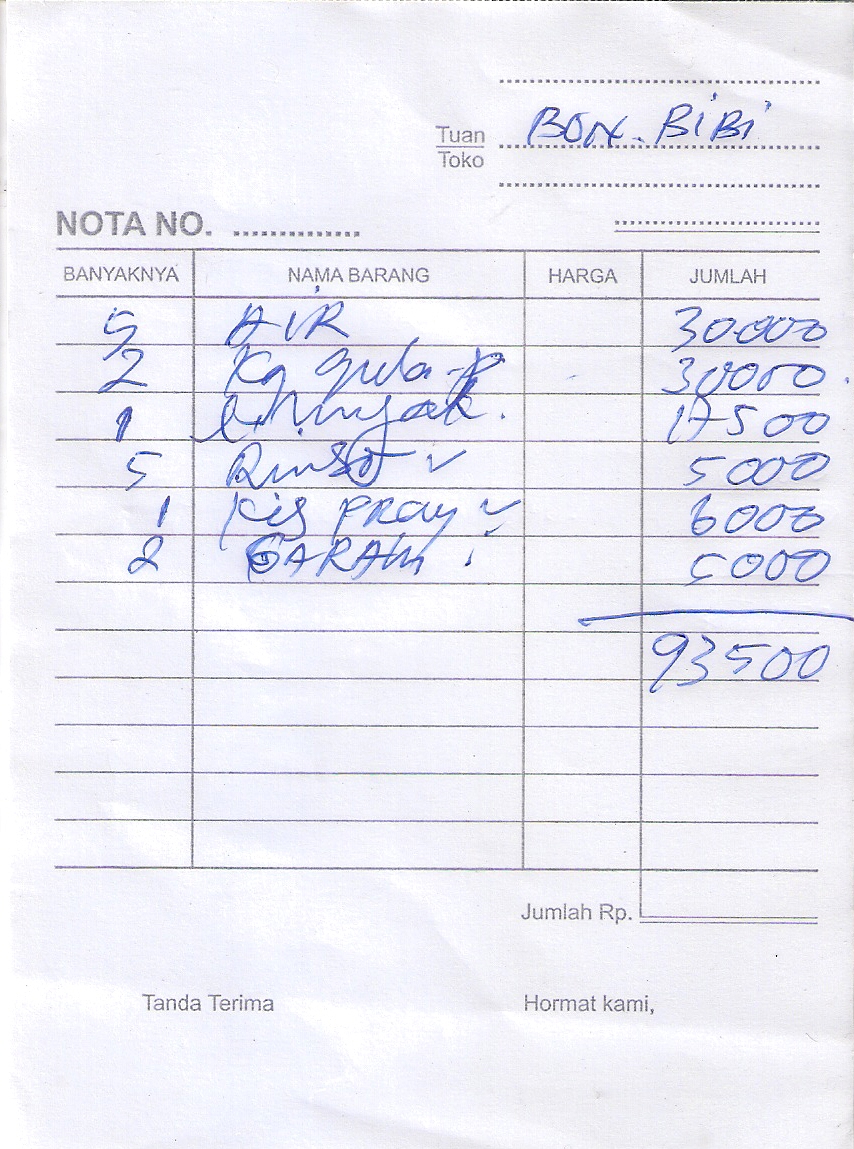 Tuan BON. BiBi
Toko
NOTA NO. ..............
BANYAKNYA NAMA BARANG HARGA JUMLAH
5 AIR 30000
2 Kg gula-p 30000.
1 L. minyak. 17500
5 Rinso ✓ 5000
1 kis pray ✓ 6000
2 GARAM. 5000
93500
Jumlah Rp.
Tanda Terima Hormat kami,